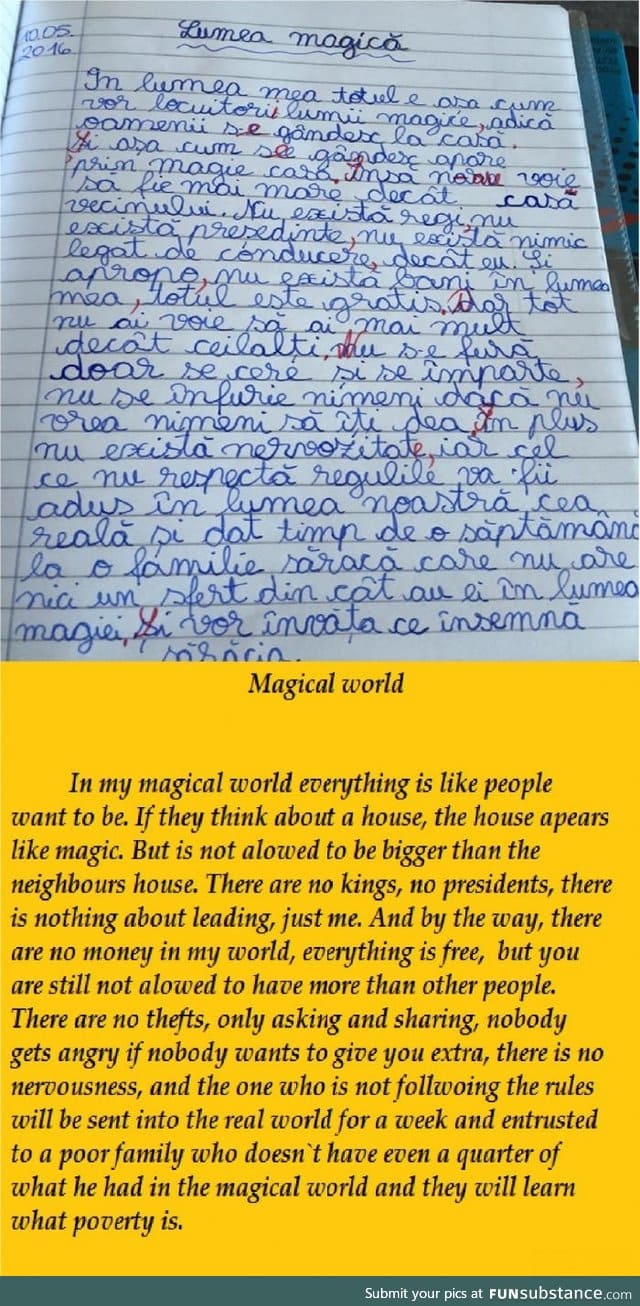 10.05.
2016
Lumea magică
În lumea mea totul e asa cum
vor locuitorii lumii magice, adică
oamenii s-e gândesc la casă.
Și asa cum se gândesc apare
prin magie casa. Însă n-are voie
să fie mai mare decât casa
vecinului. Nu există regi, nu
există presedinte, nu există nimic
legat de conducere, decât eu. Și
apropo, nu există bani în lumea
mea, totul este gratis. Dar tot
nu ai voie să ai mai mult
decât ceilalti. Nu s-e fură
doar se cere si se împarte,
nu se înfurie nimeni dacă nu
vrea nimeni să îti dea. În plus
nu există nervozitate, iar cel
ce nu respectă regulile va fii
adus în lumea noastră cea
reală și dat timp de o săptămân
la o familie săracă care nu are
nici un sfert din cât au ei în lumea
magiei. Și vor învăta ce însemnă
sărăcia.
Magical world
In my magical world everything is like people
want to be. If they think about a house, the house apears
like magic. But is not alowed to be bigger than the
neighbours house. There are no kings, no presidents, there
is nothing about leading, just me. And by the way, there
are no money in my world, everything is free, but you
are still not alowed to have more than other people.
There are no thefts, only asking and sharing, nobody
gets angry if nobody wants to give you extra, there is no
nervousness, and the one who is not follwoing the rules
will be sent into the real world for a week and entrusted
to a poor family who doesn`t have even a quarter of
what he had in the magical world and they will learn
what poverty is.
Submit your pics at FUNsubstance.com